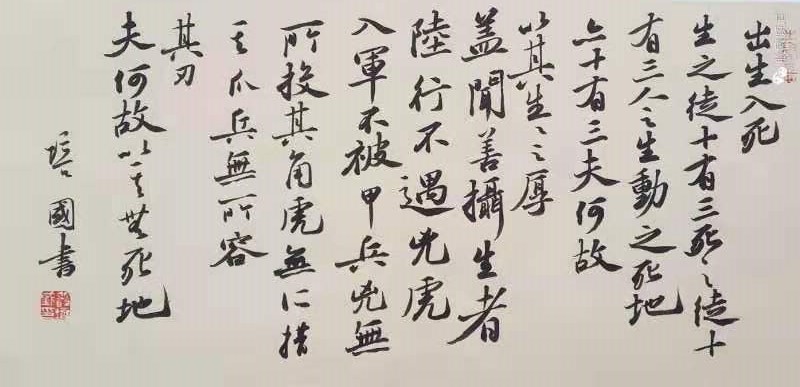 出生入死
生之徒十有三死之徒十
有三人之生動之死地
亦十有三夫何故
以其生々之厚
蓋聞善攝生者
陸行不遇兕虎
入軍不被甲兵兕無
所投其角虎無所措
其爪兵無所容
其刃
夫何故以其無死地
培國書